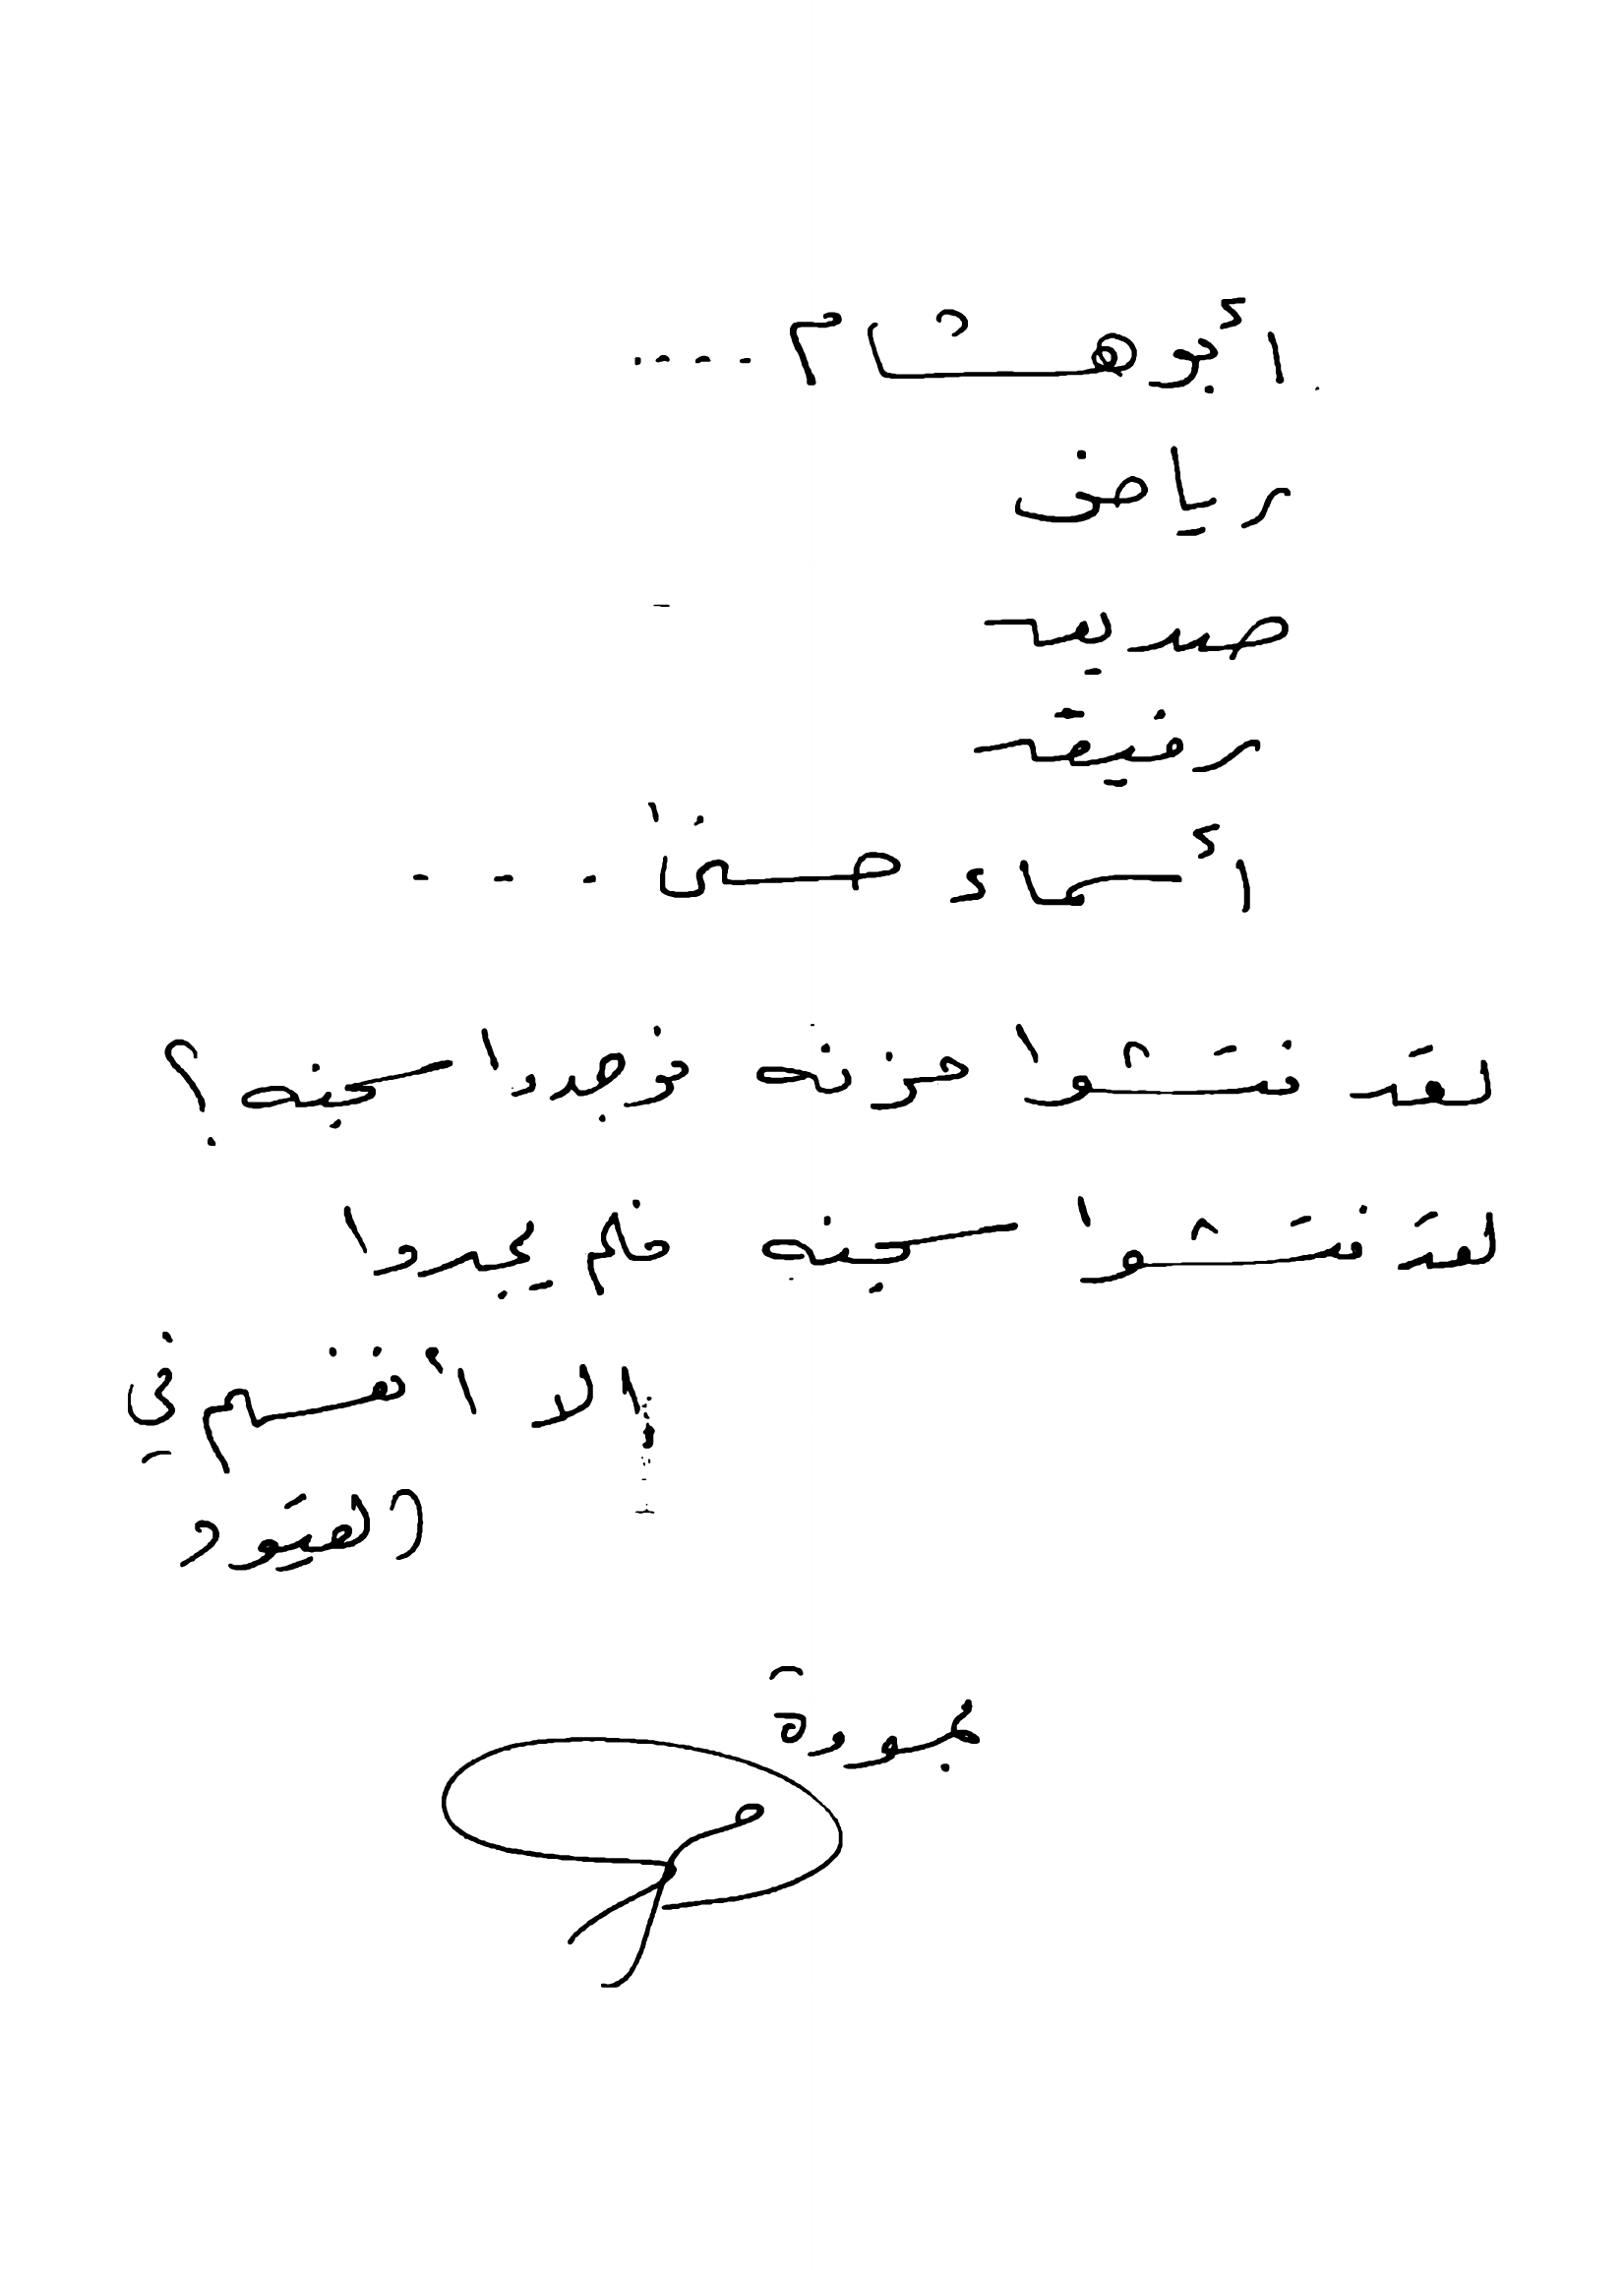 أبو هشام ....
رياض
صديقه
رفيقه
أسماء حسنى ...
لقد فتشوا حزنه فوجدوا سجينه ؟
لقد فتشوا سجينه فلم يجدوا
إلا أنفسهم في
القيود